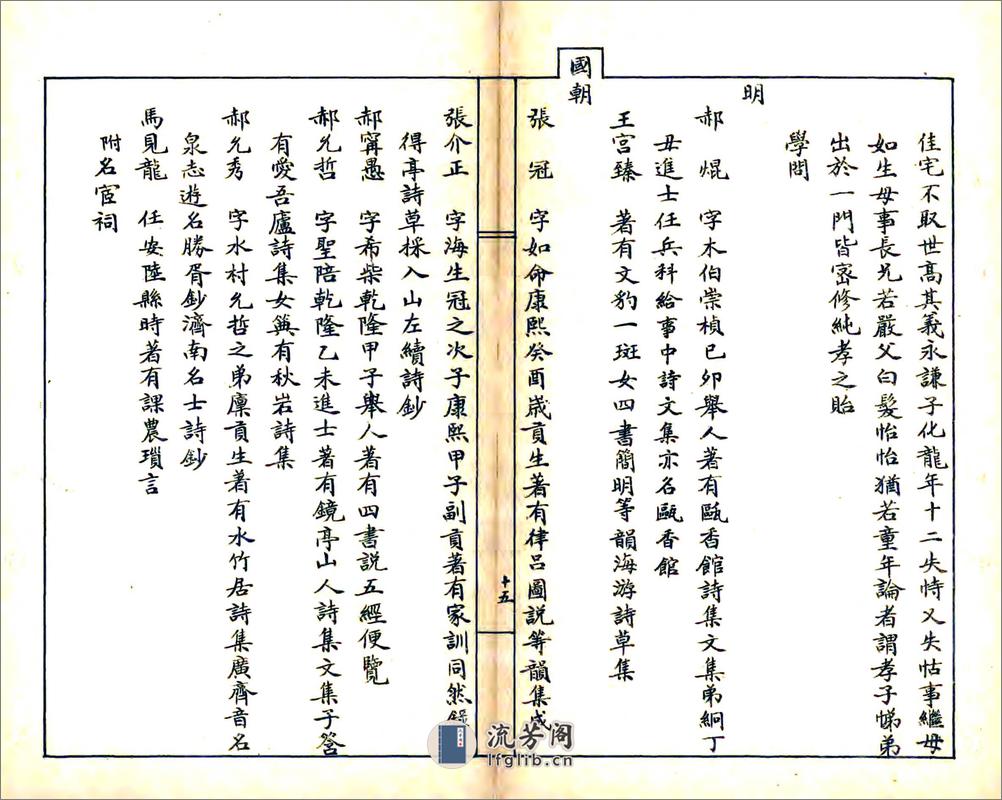 佳宅不取世高其義永謙子化龍年十二失恃又失怙事繼母
如生母事長兄若嚴父白髮怡怡猶若童年論者謂孝子悌弟
出於一門皆密修純孝之貽
學問
明
郝焜 字木伯崇楨已卯舉人著有甌香館詩集文集弟絅丁
丑進士任兵科給事中詩文集亦名甌香館
王宮臻 著有文豹一斑女四書簡明等韻海游詩草集
國朝
張冠 字如命康熙癸酉歲貢生著有律呂圖説等韻集成
十五
張介正 字海生冠之次子康熙甲子副貢著有家訓同然錄
得亭詩草採入山左續詩鈔
郝甯愚 字希柴乾隆甲子舉人著有四書説五經便覽
郝允哲 字聖陪乾隆乙未進士著有鏡亭山人詩集文集子答
有愛吾廬詩集女䈪有秋岩詩集
郝允秀 字水村允哲之弟廩貢生著有水竹居詩集廣齊音名
泉志遊名勝胥鈔濟南名士詩鈔
馬見龍 任安陸縣時著有課農瑣言
附名宦祠
流芳阁
lfglib.cn